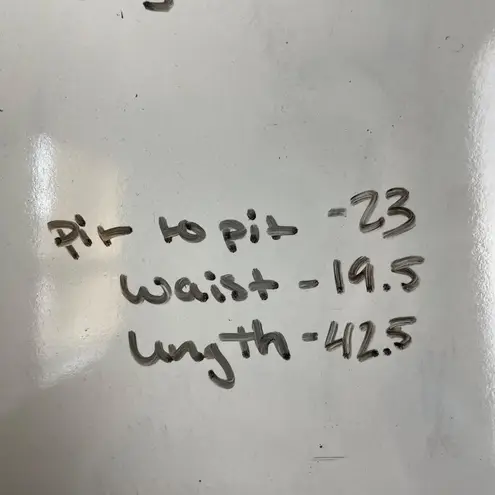 pit to pit - 23
waist - 19.5
length - 42.5